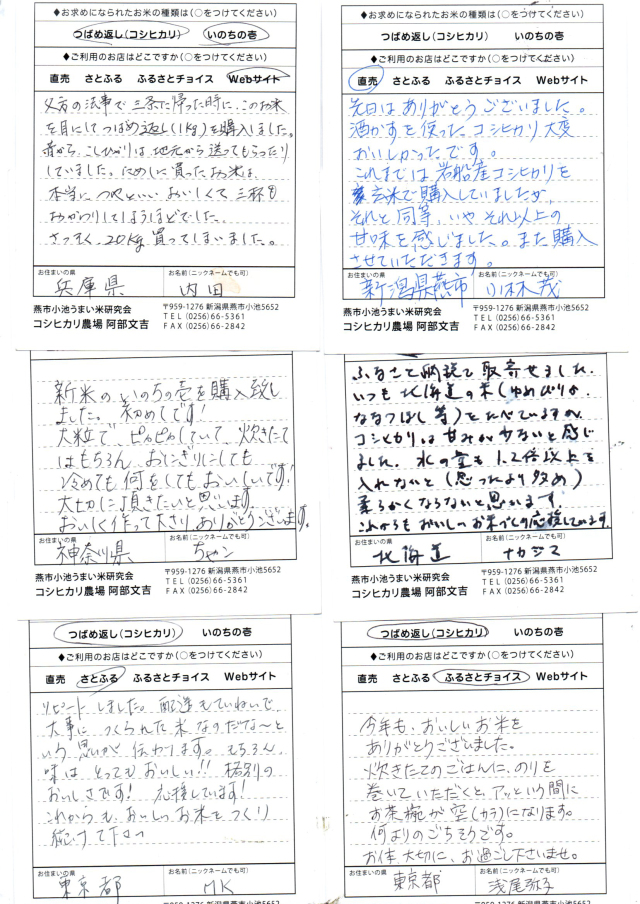 ◆お求めになられたお米の種類は(○をつけてください)
つばめ返し(コシヒカリ) いのちの壱
◆ご利用のお店はどこですか(○をつけてください)
直売 さとふる ふるさとチョイス Webサイト
父方の法事で三条に帰った時に、このお米
を目にしてつばめ返し(1kg)を購入しました。
昔から、こしひかりは地元から送ってもらったり
していました。ためしに買ったお米は、
本当に、つやといい、おいしくて三杯も
おかわりしてしまうほどでした。
さっそく、20kg買ってしまいました。
お住まいの県 お名前(ニックネームでも可)
兵庫県 内田
燕市小池うまい米研究会
コシヒカリ農場 阿部文吉
〒959-1276 新潟県燕市小池5652
TEL (0256)66-5361
FAX (0256)66-2842
◆お求めになられたお米の種類は(○をつけてください)
つばめ返し(コシヒカリ) いのちの壱
◆ご利用のお店はどこですか(○をつけてください)
直売 さとふる ふるさとチョイス Webサイト
先日はありがとうございました。
酒かすを使ったコシヒカリ大変
おいしかったです。
これまでは岩船産コシヒカリを
玄米で購入していましたが、
それと同等、いやそれ以上の
甘味を感じました。また購入
させていただきます。
お住まいの県 お名前(ニックネームでも可)
新潟県燕市 小林茂
燕市小池うまい米研究会
コシヒカリ農場 阿部文吉
〒959-1276 新潟県燕市小池5652
TEL (0256)66-5361
FAX (0256)66-2842
新米のいのちの壱を購入致し
ました。初めてです!
大粒で、ピカピカしていて、炊きたて
はもちろん、おにぎりにしても
冷めても何をしてもおいしいです!
大切に頂きたいと思います。
おいしく作って下さり、ありがとうございます。
お住まいの県 お名前(ニックネームでも可)
神奈川県 ちゃン
燕市小池うまい米研究会
コシヒカリ農場 阿部文吉
〒959-1276 新潟県燕市小池5652
TEL (0256)66-5361
FAX (0256)66-2842
ふるさと納税で取寄せました。
いつも北海道の米(ゆめぴりか、
ななつぼし等)をたべていますが、
コシヒカリは甘みが少ないと感じ
ました。水の量も1.2倍以上を
入れないと(思ったより多め)
柔らかくならないと思います。
これからもおいしいお米づくり応援しています。
お住まいの県 お名前(ニックネームでも可)
北海道 ナカジマ
燕市小池うまい米研究会
コシヒカリ農場 阿部文吉
〒959-1276 新潟県燕市小池5652
TEL (0256)66-5361
FAX (0256)66-2842
つばめ返し(コシヒカリ) いのちの壱
◆ご利用のお店はどこですか(○をつけてください)
直売 さとふる ふるさとチョイス Webサイト
リピートしました。配送もていねいで、
大事につくられた米なのだな〜と
いう思いが伝わります。もちろん、
味はとってもおいしい!! 格別の
おいしさです! 応援しています!
これからも、おいしいお米をつくり
続けて下さい
お住まいの県 お名前(ニックネームでも可)
東京都 MK
〒959-1276 新潟県燕市小池5652
つばめ返し(コシヒカリ) いのちの壱
◆ご利用のお店はどこですか(○をつけてください)
直売 さとふる ふるさとチョイス Webサイト
今年も、おいしいお米を
ありがとうございました。
炊きたてのごはんに、のりを
巻いていただくと、アッという間に
お茶椀が空(カラ)になります。
何よりのごちそうです。
お体、大切に、お過ごし下さいませ。
お住まいの県 お名前(ニックネームでも可)
東京都 浅尾弥子
〒959-1276 新潟県燕市小池5652